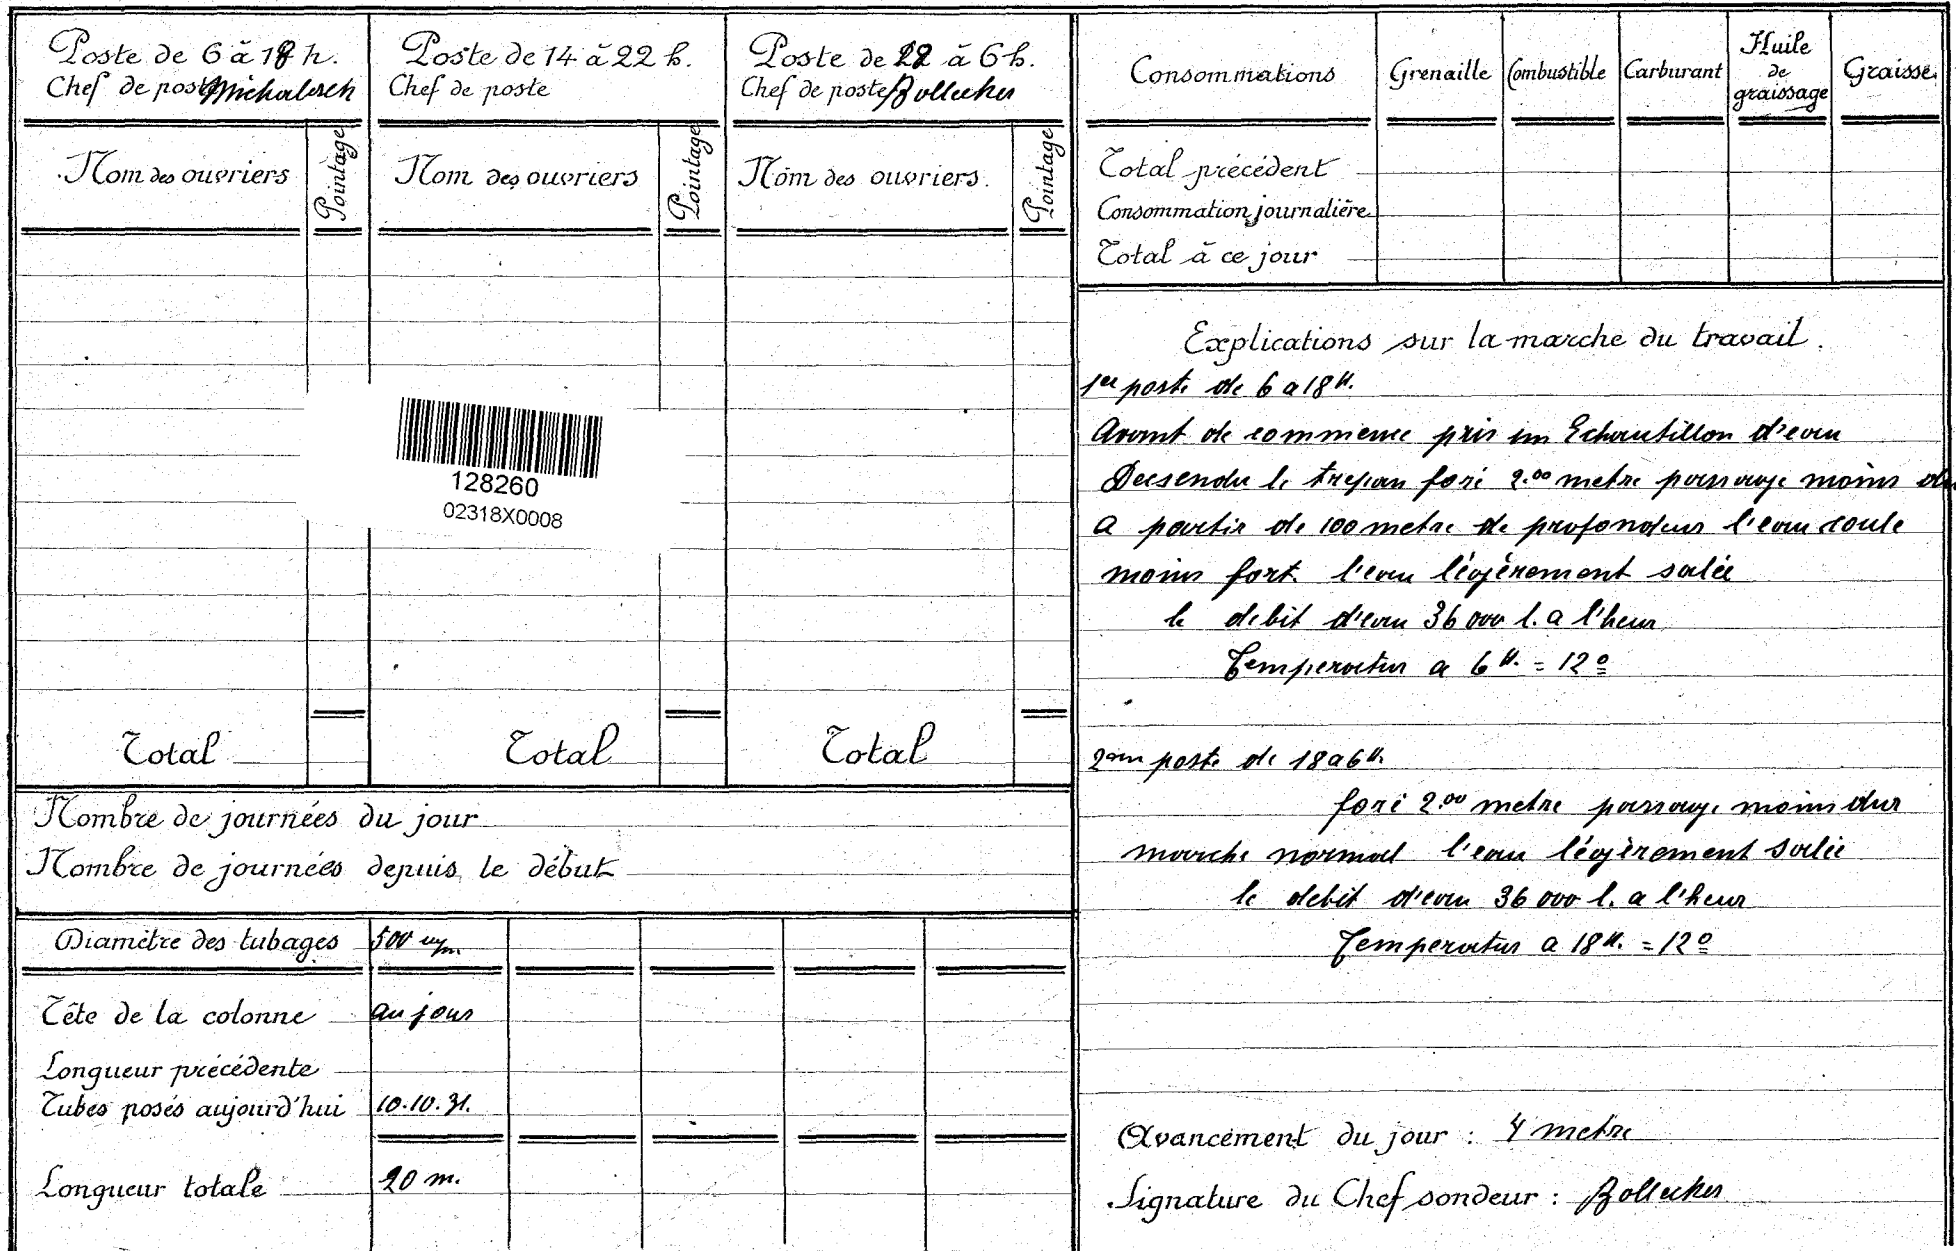 Poste de 6 à 18 h.
Chef de poste Michalesch
Poste de 14 à 22 h.
Chef de poste
Poste de 22 à 6 h.
Chef de poste Bollecker
Nom des ouvriers
Pointage
Nom des ouvriers
Pointage
Nom des ouvriers.
Pointage
128260
02318X0008
Total
Total
Total
Nombre de journées du jour
Nombre de journées depuis le début
Diamètre des tubages 500 m/m
Tête de la colonne au jour
Longueur précédente
Tubes posés aujourd'hui 10.10.31.
Longueur totale 20 m.
Consommations
Grenaille
Combustible
Carburant
Huile
de
graissage
Graisse
Total précédent
Consommation journalière
Total à ce jour
Explications sur la marche du travail.
1er poste de 6 a 18 H.
Avant de commence pris un Echantillon d'eau
Decsendu le trepan foré 2.00 metre passage moins du
a partir de 100 metre de profondeur l'eau coule
moins fort. l'eau légèrement salée
le debit d'eau 36 000 l. a l'heur
Temperatur a 6 H. = 12º
2em poste de 18 a 6 H.
foré 2.00 metre passage moins dur
marche normal l'eau légèrement salée
le debit d'eau 36 000 l. a l'heur
Temperatur a 18 H. = 12º
Avancement du jour : 4 metre
Signature du Chef sondeur : Bollecker